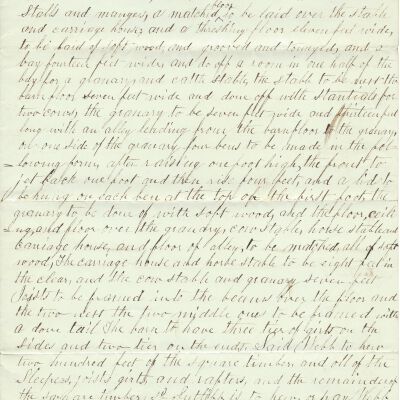 floor
Stalls and mangers, a matched to be laid over the stable
and carriage house, and a threshing floor eleven feet wide,
to be laid of soft wood, and grooved and tongued, and a
bay fourteen feet wide, and do off a room in one half of the
bay for a granary, and cattle stable, the stable to be next the
barn floor, seven feet wide and done off with stantials for
two cows, the granary to be seven feet wide and fourteen feet
long with an alley leading from the barn floor to the granary,
on one side of the granary four bens to be made in the fol-
lowing form, after raising one foot high, the front to
jet back one foot and then rise four feet, and a lid to
be hung on each ben at the top of the first foot, the
granary to be done of with soft wood, and the floor, ceil-
ing, and floor over the granary, cow stable, horse stable and
carriage house, and floor of alley, to be matched, all of soft
wood, The carriage house and horse stable to be eight feet in
the clear, and the cow stable and granary seven feet
Joists to be framed into the beams over the floor and
the two next the two middle ones to be framed with
a dove tail The barn to have three tier of girts on the
sides and two tier on the ends. Said Webb to hew
two hundred feet of the square timber and all of the
Sleepers, joists girts, and rafters, and the remainder of
the square timber